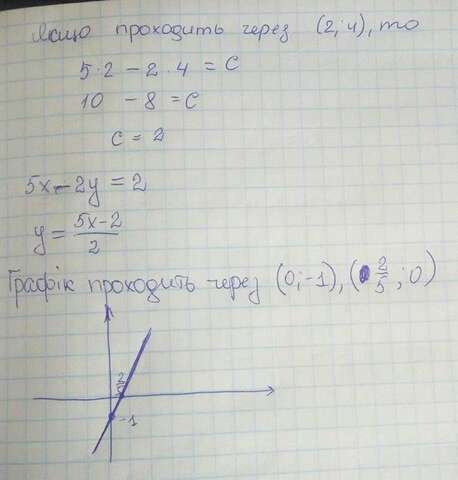 Якщо проходить через (2; 4), то
5·2 – 2·4 = C
10 – 8 = C
C = 2
5x – 2y = 2
y = \frac{5x-2}{2}
Графік проходить через (0; -1), (\frac{2}{5}; 0)
\frac{2}{5}
-1